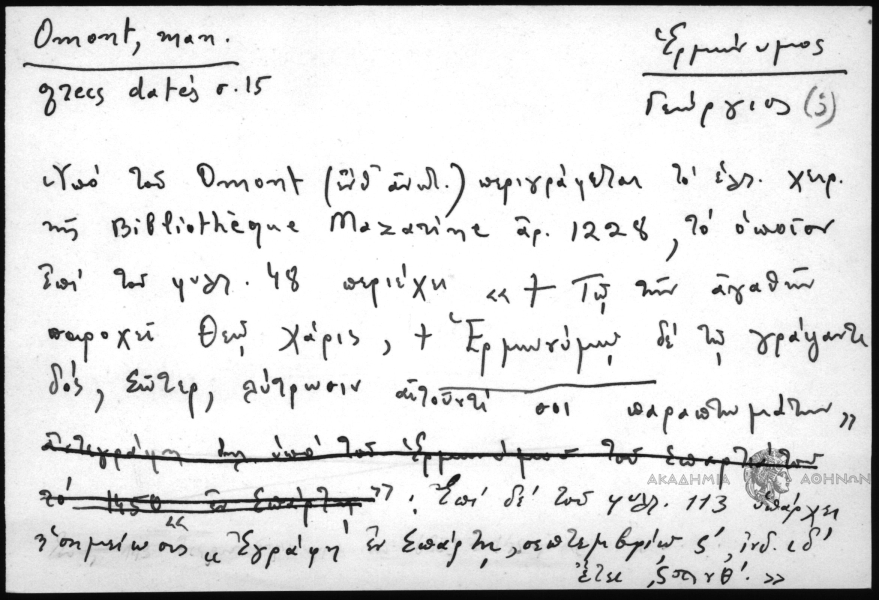 Omont, man.
grecs datés σ. 15
Ἑρμώνυμος
Γεώργιος (ὁ)
Ὑπό τοῦ Omont (ἔνθ' ἀνωτ.) περιγράφεται τό ἑλλ. χειρ.
τῆς Bibliothèque Mazarine ἀρ. 1228, τό ὁποῖον
ἐπί τοῦ φυλλ. 48 περιέχει « + Τῷ τὴν ἀγαθὴν
παροχεῖ Θεῷ χάρις, + Ἑρμωνύμῳ δέ τῷ γράψαντι
δός, σῶτερ, λύτρωσιν αἰτοῦντί σοι παραπτωμάτων»
ἀντεγράφη ὑπό τοῦ Ἑρμωνύμου τοῦ Σπαρτιάτου
τό 1450 ἐν Σπάρτῃ» . Ἐπί δέ τοῦ φυλλ. 113 ὑπάρχει
ἡ σημείωσις « Ἐγράφη ἐν Σπάρτῃ, σεπτεμβρίῳ ς΄, ἰνδ. ιδ΄
ἔτει ͵ϛϡνθ΄. »
ΑΚΑΔΗΜΙΑ ΑΘΗΝΩΝ